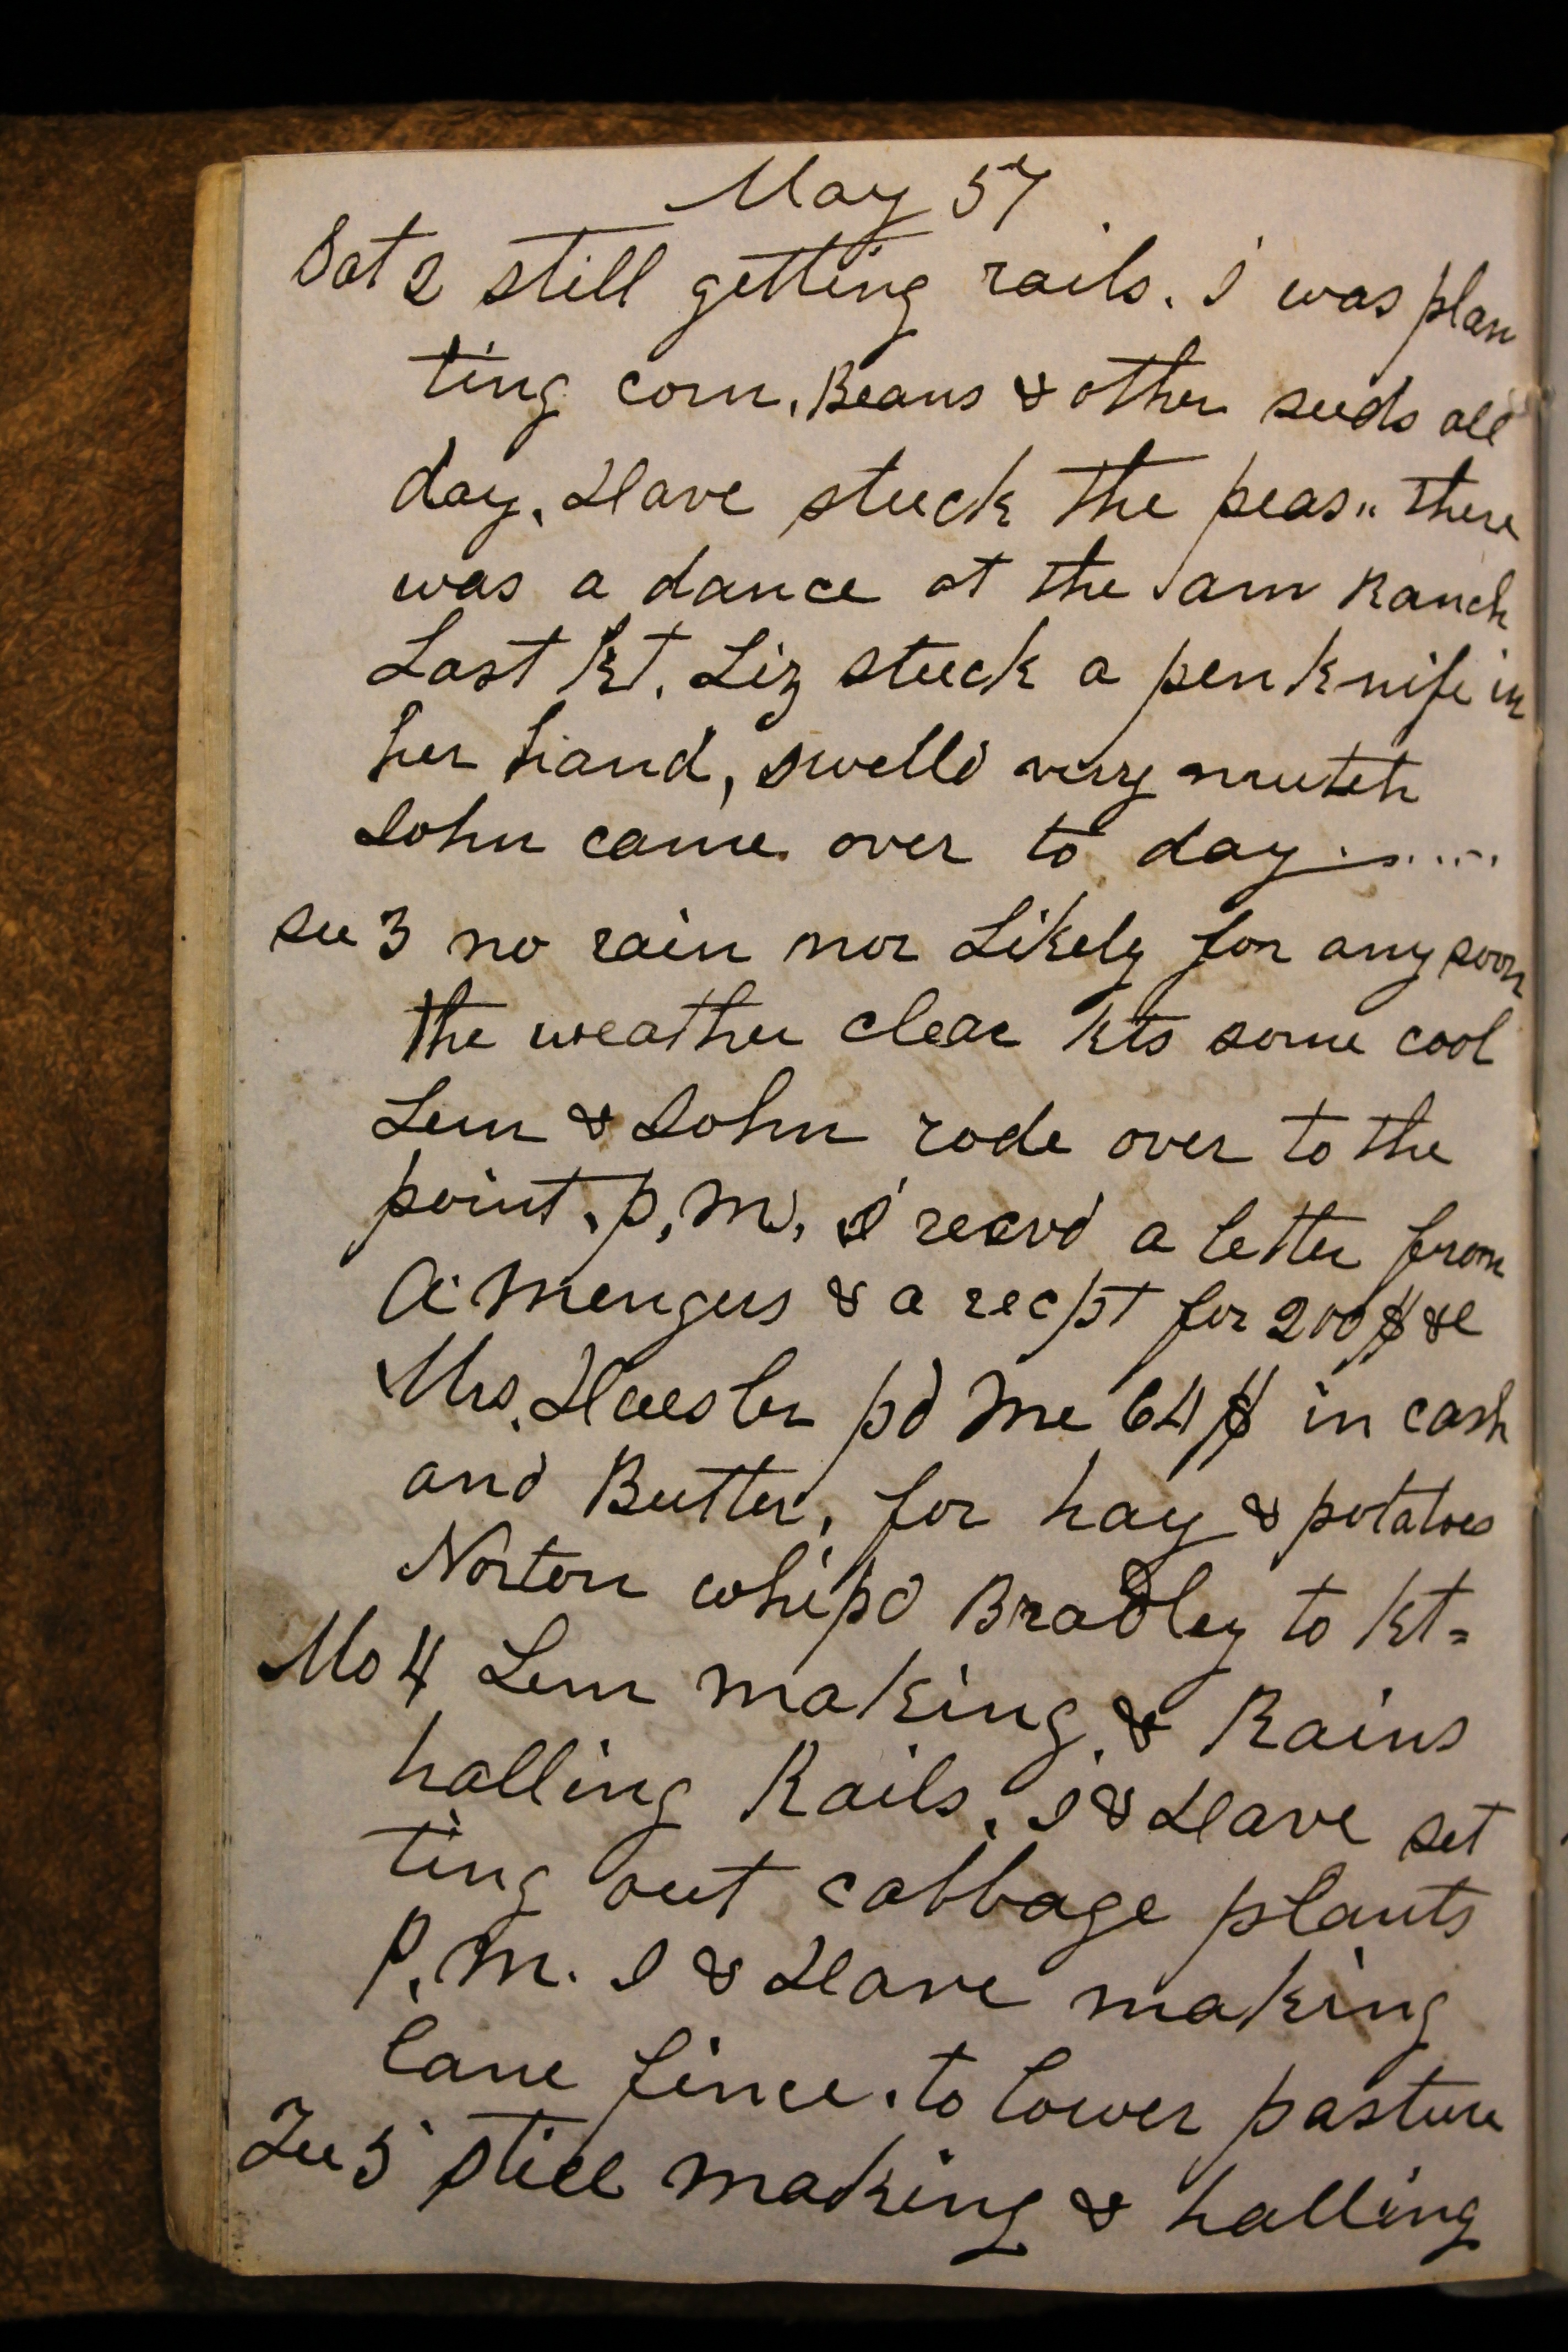 May 57
Sat 2 still getting rails. I was plan
ting corn, Beans & other seeds all
day. Have stuck the peas.. there
was a dance at the am Ranch
Last kt. Liz stuck a penknife in
her hand, swelld very mutch
John came over to day
su 3 no rain nor Likely for any soon
the weather clear kts some cool
Lem & John rode over to the
point. p.m. I reavd a letter from
A. Mengus & a recpt for 200$ &c
Mrs. pd me 64$ in cash
and Butter, for hay & potatoes
Norton whipd Bradley to kt=
Mo 4 Lem making & Rains
halling Rails. I & Have set
ting out cabbage plants
P.M. I & Have making
lane fince. to lower pasture
Tu 5 still making & halling